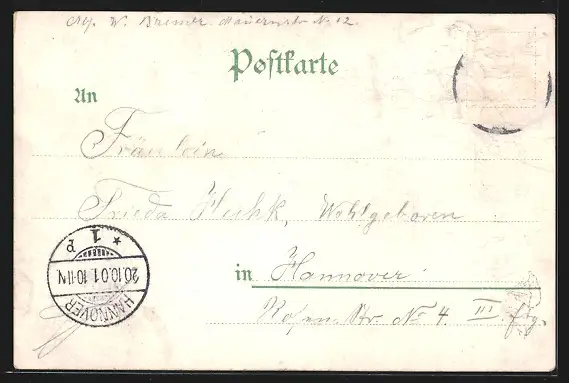 W. Bremer. Mauernstr No 12.
Postkarte
An
Fräulein
Frieda Wohlgeboren
in Hannover.
Rosen Str. No 4. III
HANNOVER
20.10.01.10-11N
* 1 p